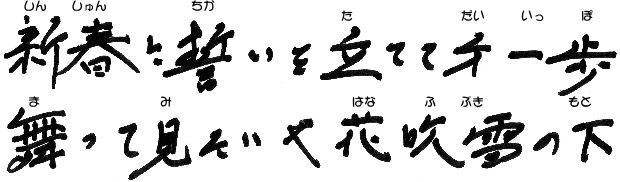 しん しゅん ちか た だい いっ ぽ
新春に誓いを立てて才一歩
ま み はな ふ ぶき もと
舞って見たいや花吹雪の下